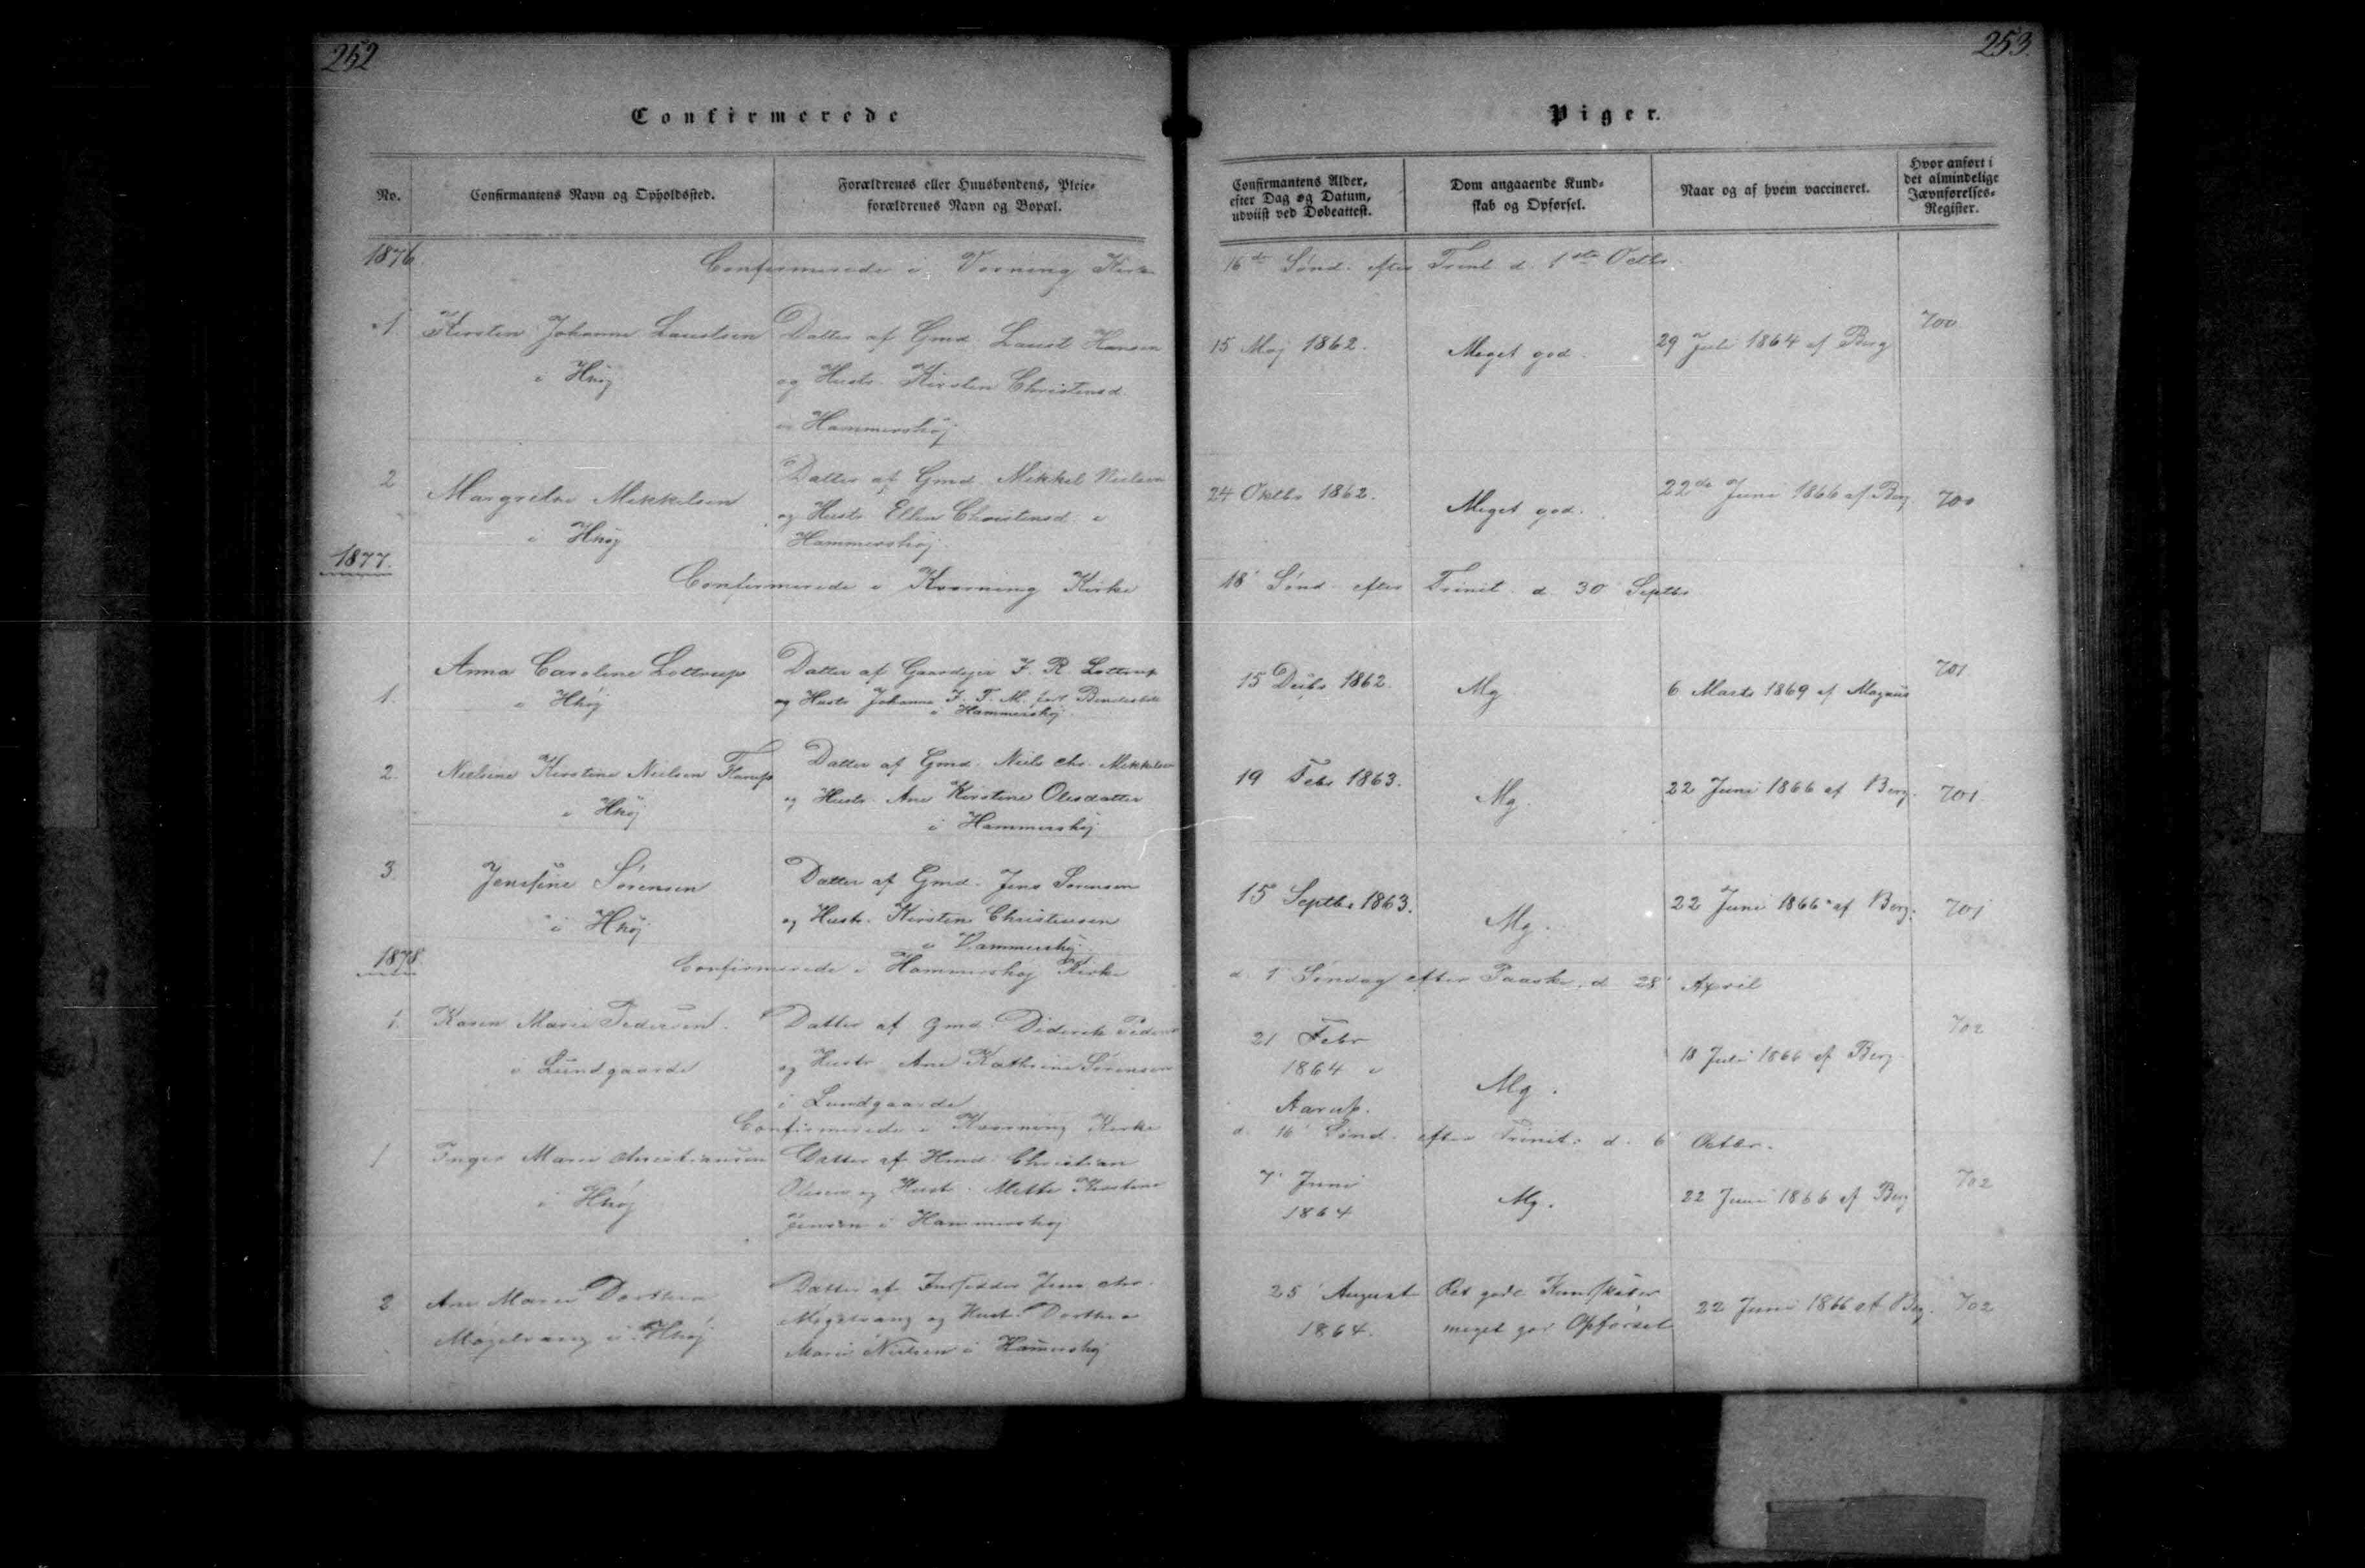 252
Confirmerede
No.
Confirmantens Navn og Opholdssted.
Forældrenes eller Huusbondens, Pleie-
forældrenes Navn og Bopæl.
1876.
Confirmerede i Vorning Kirke
1.
Kirsten Johanne Laustsen
i Hhöj
Datter af Gmd. Laust Hansen
og Hustr. Kirsten Christensd.
i Hammershöj
2
Margrethe Mikkelsen
i Hhöj
Datter af Gmd. Mikkel Nielsen
og Hustr. Ellen Christensd. i
Hammershöj.
1877.
Confirmerede i Kvorning Kirke
1.
Anna Caroline Lottrup
i Hhöj
Datter af Gaardejer F. R. Lottrup
og Hustr. Johanne F. F. M. født
i Hammershöj.
2.
Nielsine Kirstine Nielsen
i Hhöj
Datter af Gmd. Niels Chr. Mikkelsen
og Hustr. Ane Kirstine Olesdatter
i Hammershöj
3.
Jensine Sørensen
i Hhöj
Datter af Gmd. Jens Sørensen
og Hustr. Kirsten Christensen
i Hammershöj.
1878.
Confirmerede i Hammershøj Kirke
1.
Karen Marie Pedersen.
i Lundgaarde
Datter af Gmd. Diderik Peders
og Hustr. Ane Kathrine Sørensen
i Lundgaarde
Confirmerede i Kvorning Kirke
1
Inger Marie Christiansen
i Hhöj
Datter af Hmd. Christian
Olesen og Hust. Mette Kirstine
Jensen i Hammershøj
2
Ane Marie Dorthea
Møgelvang i Hhöj
Datter af Indsidder Jens Chr.
Møgelvang og Hust. Dorthea
Marie Nielsen i Hammershøj
253.
Piger.
Confirmantens Alder,
efter Dag og Datum,
udviist ved Døbeattest.
Dom angaaende Kund-
skab og Opførsel.
Naar og af hvem vaccineret.
Hvor anført i
det almindelige
Jævnførelses-
Register.
16de Sønd. efter Trinit. d. 1ste Octbr.
15 Maj 1862.
Meget god.
29 Juli 1864 af Berg
700
24 Oktbr 1862.
Meget god.
22de Juni 1866 af Berg
700
18' Sønd. efter Trinit. d. 30 Septbr
15 Decbr 1862.
Mg.
6. Marts 1869 af Magaus
701
19 Febr 1863.
Mg.
22 Juni 1866 af Berg.
701
15 Septbr 1863.
Mg.
22 Juni 1866 af Berg.
701
d. 1' Søndag efter Paaske, d. 28' April
21 Febr
1864 i
Aarup.
Mg.
18 Juli 1866 af Berg
702
d. 16' Sønd. efter Trinit. d. 6' Octbr.
7' Juni
1864
Mg.
22 Juni 1866 af Berg
702
25' August
1864.
Ret gode Kundskaber
meget god Opførsel
22 Juni 1866 af Berg.
702